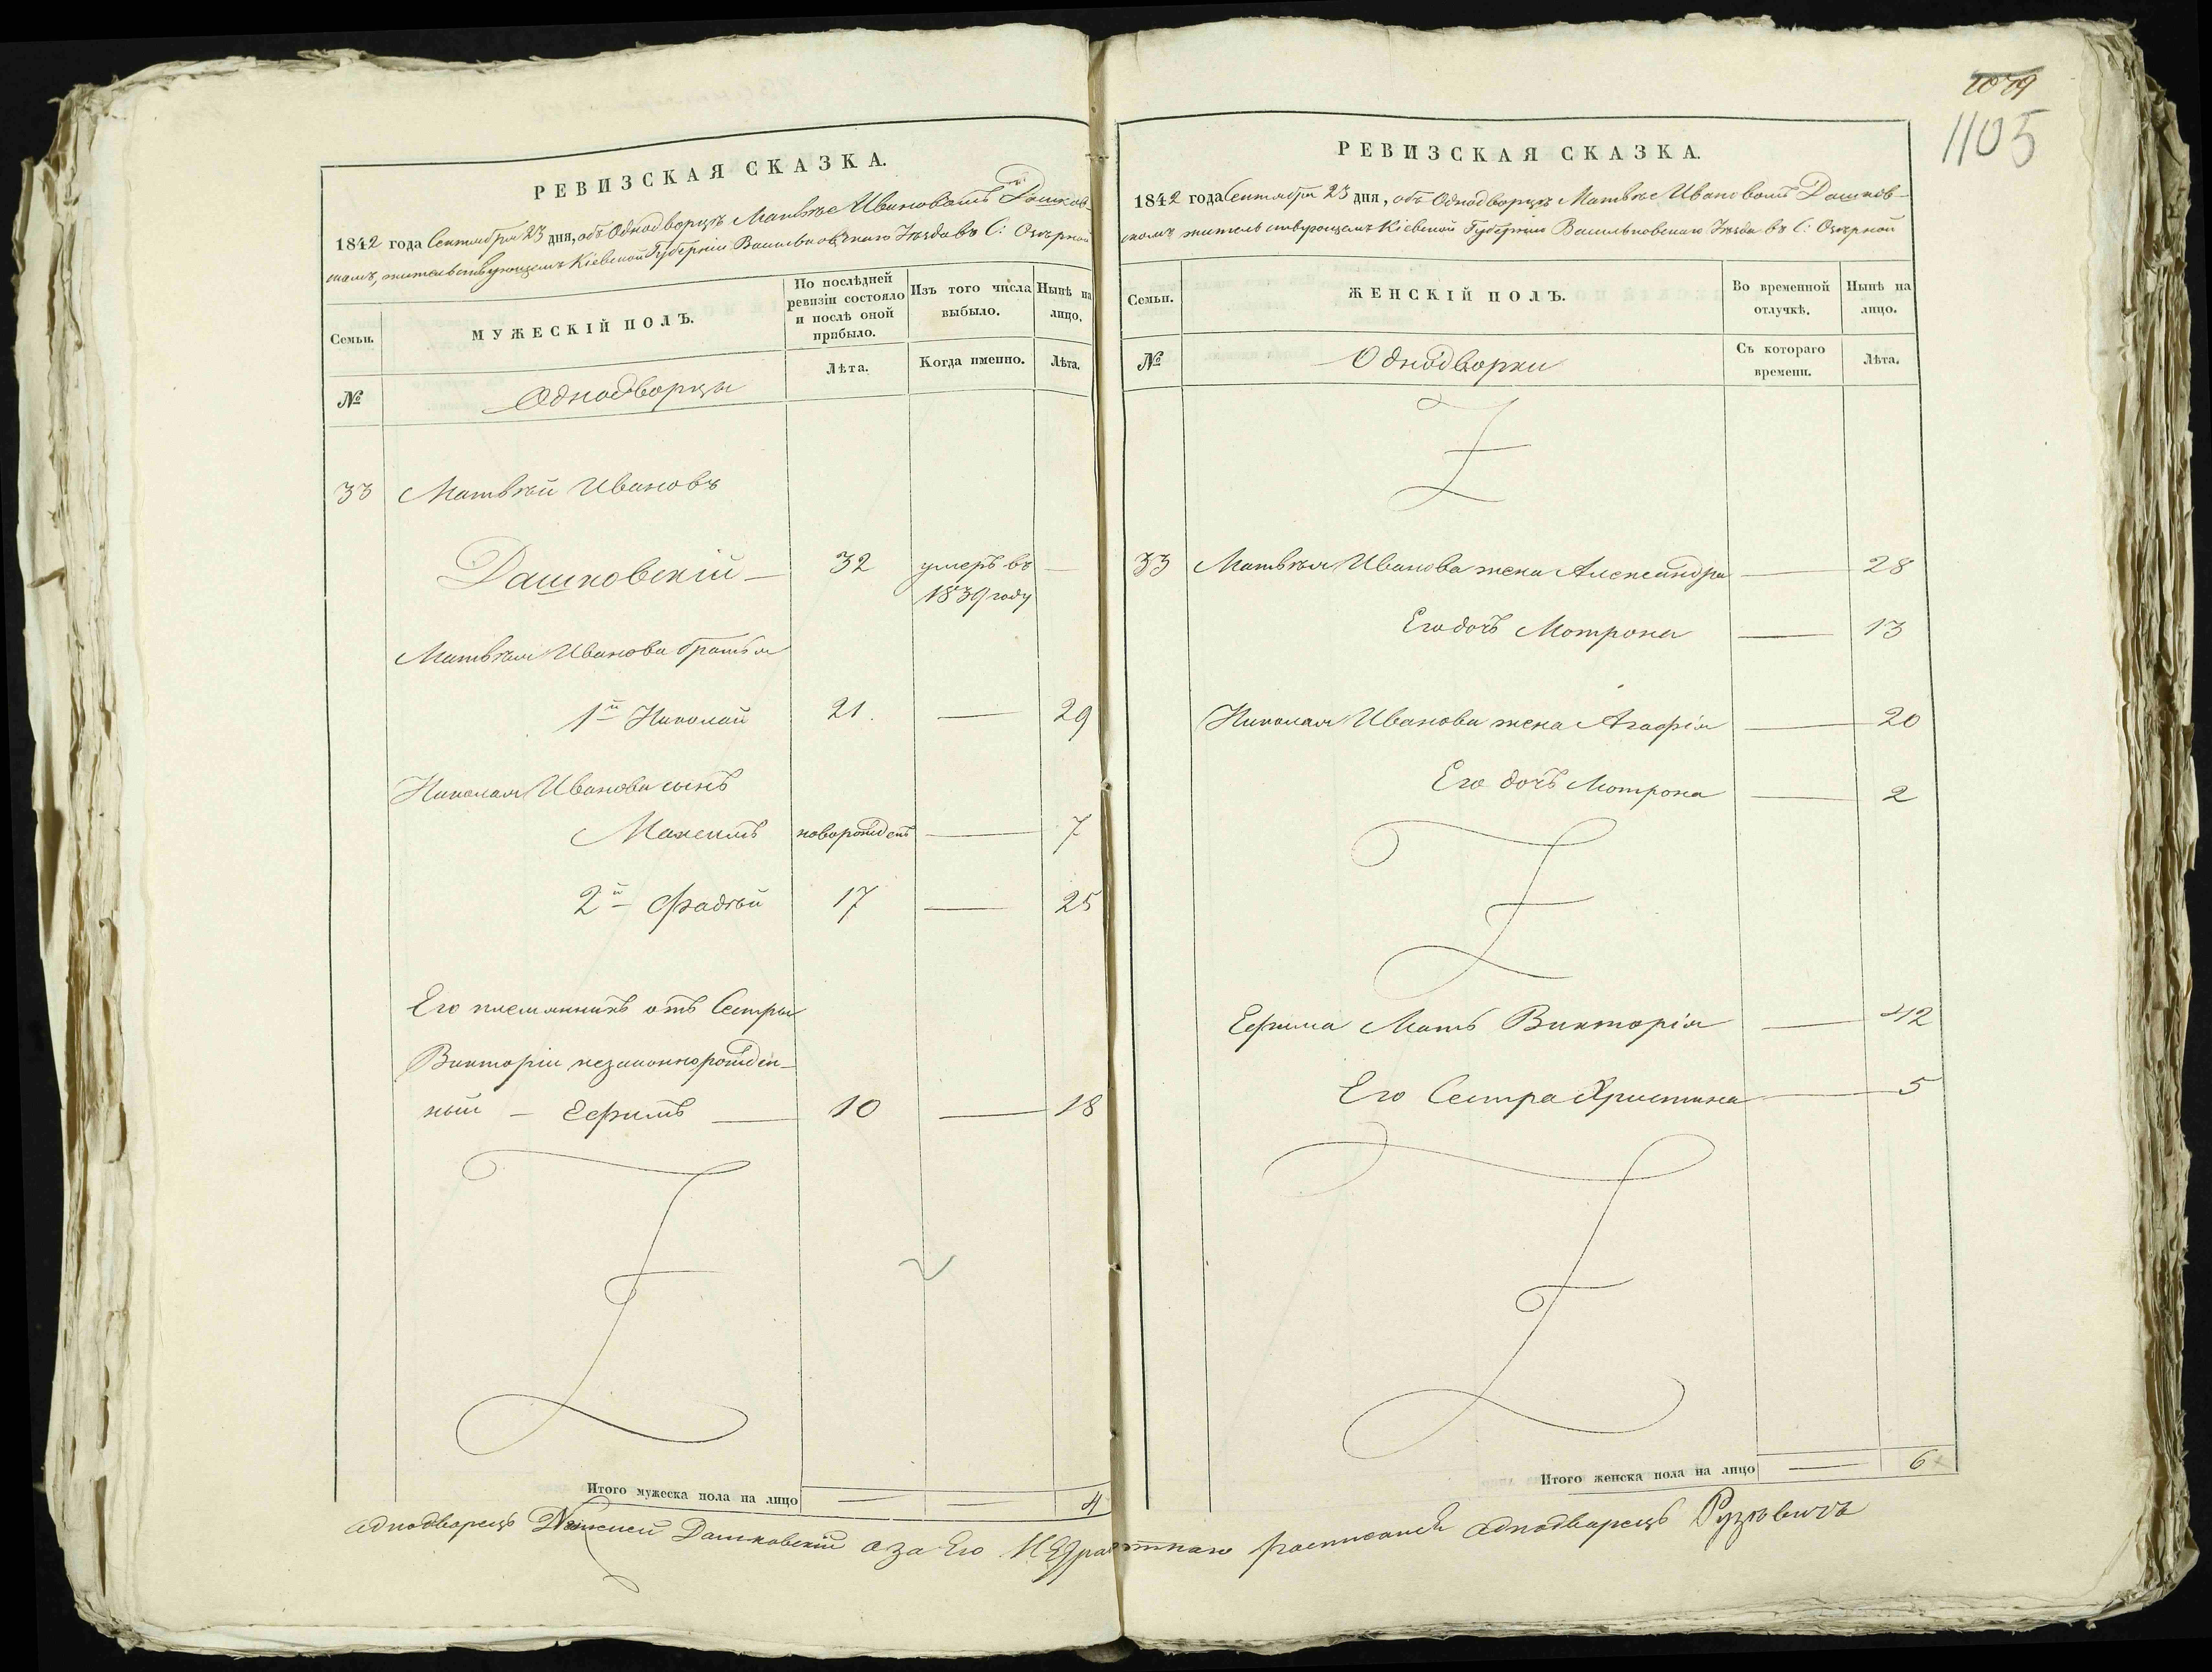 РЕВИЗСКАЯ СКАЗКА.
1842 года Сентября 23 дня, объ Однодворцѣ Матвѣе Ивановомъ Дашков-
скомъ, жительствующемъ Кіевской Губерніи Васильковскаго Уѣзда въ С: Озѣрной
Семьи.
МУЖЕСКІЙ ПОЛЪ.
По послѣдней ревизіи состояло и послѣ оной прибыло.
Изъ того числа выбыло.
Нынѣ на лицо.
№
Однодворцы
Лѣта.
Когда именно.
Лѣта.
33 Матвѣй Ивановъ
Дашковскій — 32 умеръ въ —
1839 году
Матвѣя Иванова братья
1й Николай 21. — 29
Николая Иванова сынъ
Максимъ новорожденъ — 7
2й Фадѣй 17 — 25
Его племянникъ отъ Сестры
Викторіи незаконнорожден-
ный — Ефимъ — 10 — 18
Итого мужеска пола на лицо — — 4
1079
1105
РЕВИЗСКАЯ СКАЗКА.
1842 года Сентября 23 дня, объ Однодворцѣ Матвѣе Ивановомъ Дашков-
скомъ жительствующемъ Кіевской Губерніи Васильковскаго Уѣзда въ С: Озѣрной
Семьи.
ЖЕНСКІЙ ПОЛЪ.
Во временной отлучкѣ.
Нынѣ на лицо.
№
Однодворки
Съ котораго времени.
Лѣта.
33 Матвѣя Иванова жена Александра — 28
Его дочь Мотрона — 13
Николая Иванова жена Агафія — 20
Его дочь Мотрона — 2
Ефима Мать Викторія — 42
Его Сестра Христина — 5
Итого женска пола на лицо — 6
Аднодворецъ Дашковский а за Его Неграмотнаго росписался Аднодворецъ Рузювичъ